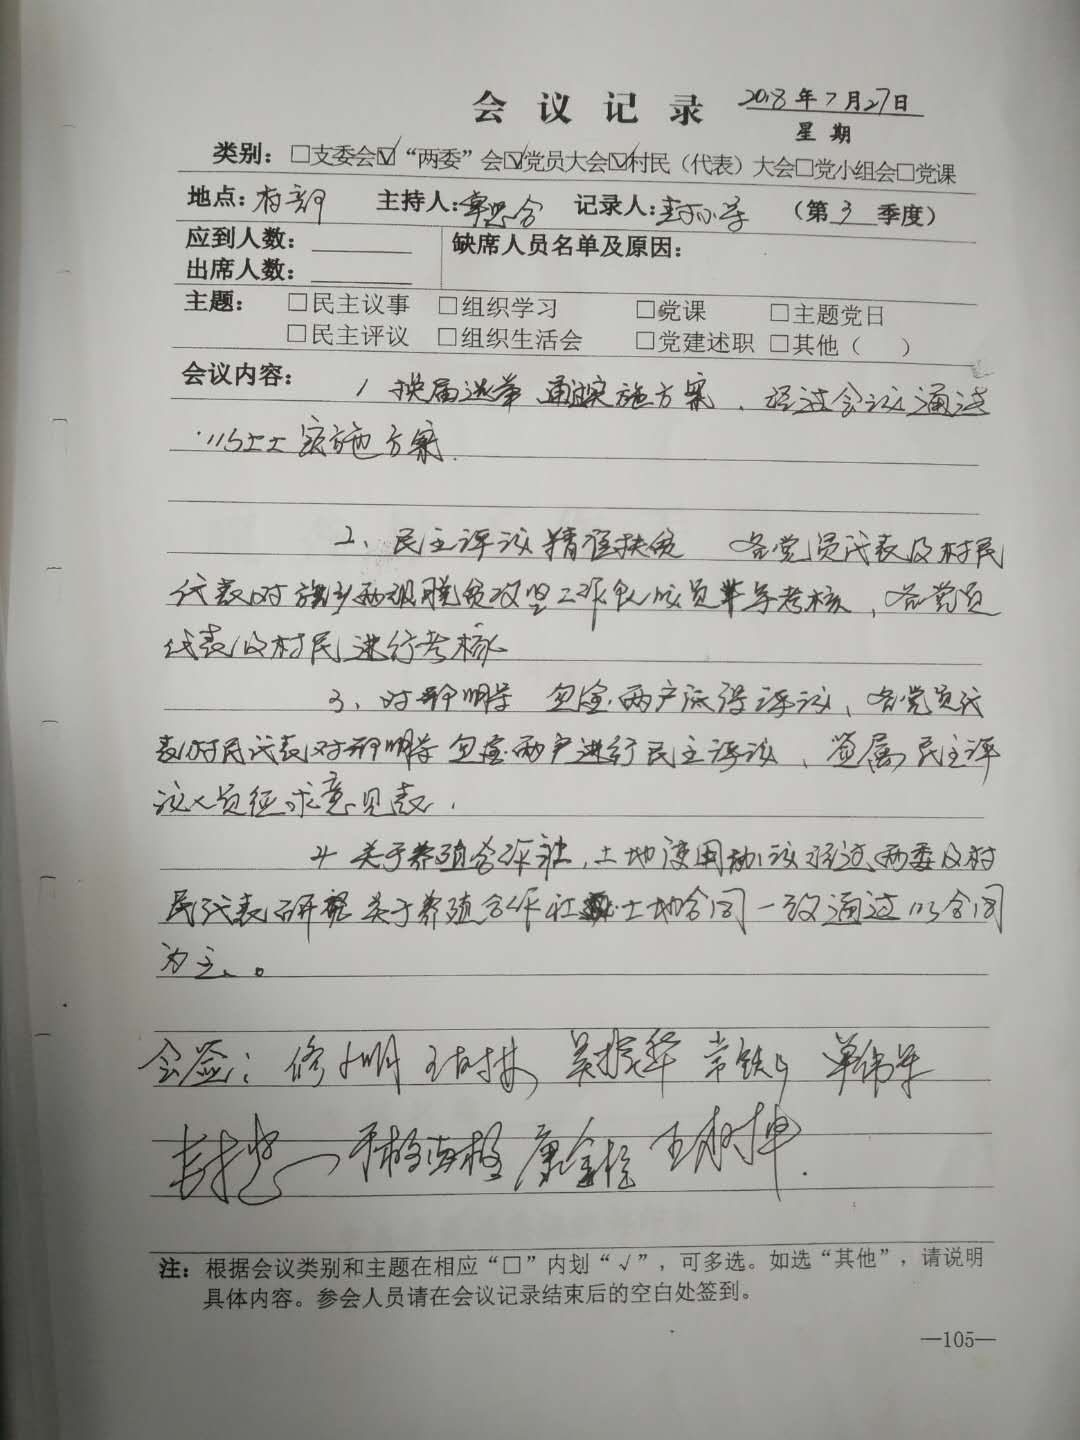 会议记录 2018年7月27日
星期
类别：□支委会☑“两委”会☑党员大会☑村民（代表）大会□党小组会□党课
地点：村部 主持人： 记录人： （第3季度）
应到人数： 缺席人员名单及原因：
出席人数：
主题： □民主议事 □组织学习 □党课 □主题党日
□民主评议 □组织生活会 □党建述职 □其他（ ）
会议内容： 1 换届选举 实施方案、经过会议通过
实施方案.
2、民主评议精准扶贫 各党员代表及村民
代表对旗乡两级脱贫攻坚工作队成员 考核，各党员
代表及村民进行考核
3、对邢明学 两户 评议、各党员代
表村民代表对邢明学 两户进行民主评议、 民主评
议人员征求意见表.
4 关于养殖合作社，土地使用协议经过两委及村
民代表研究关于养殖合作社 土地合同一致通过以合同
为主、。
会签： 吴振华 常铁
康金 王树坤.
注：根据会议类别和主题在相应“□”内划“√”，可多选。如选“其他”，请说明
具体内容。参会人员请在会议记录结束后的空白处签到。
—105—